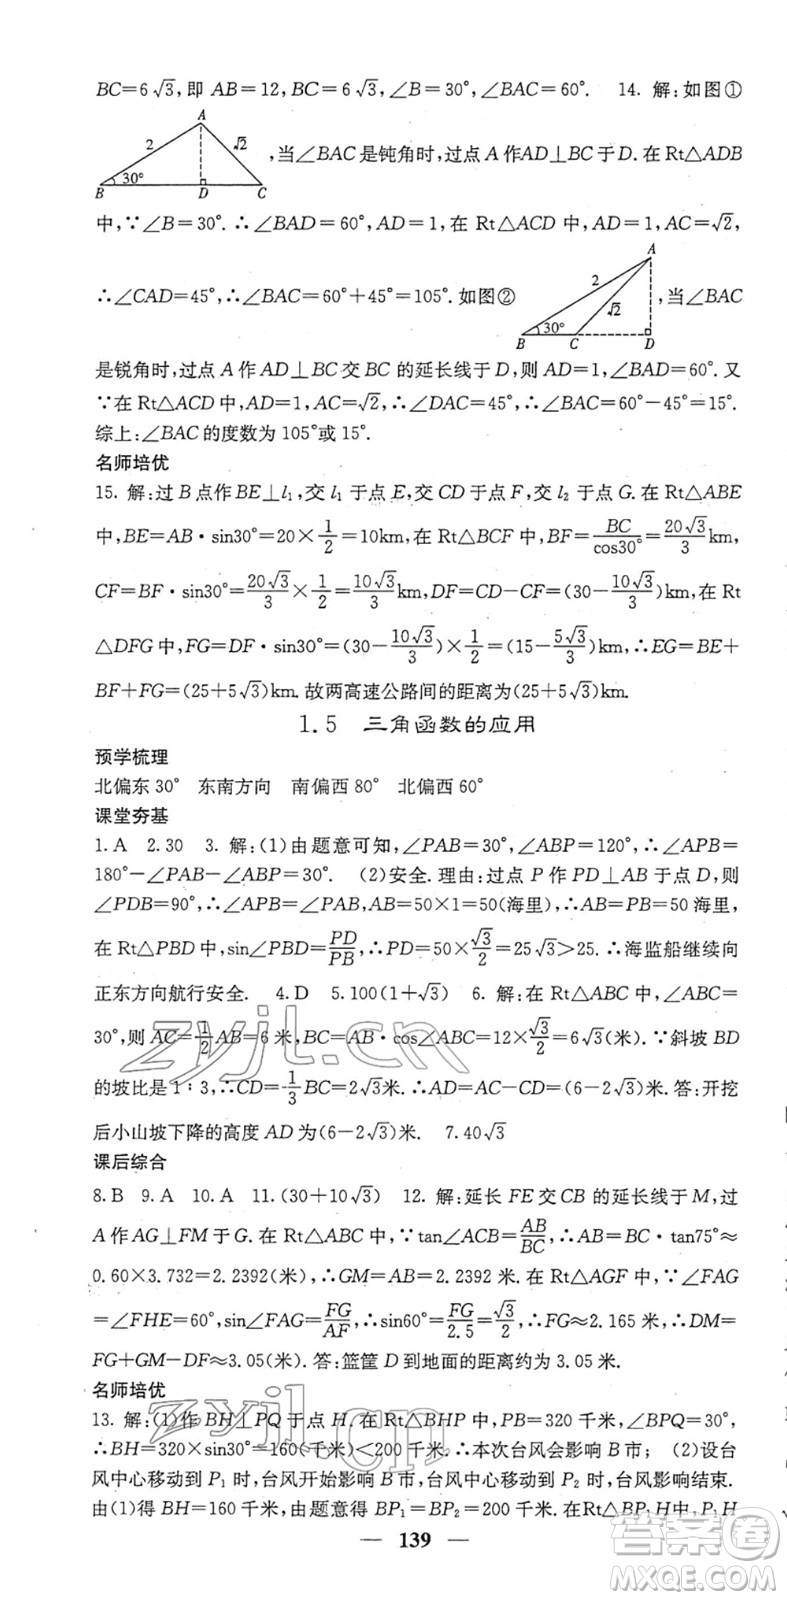 BC=6√3,即 AB=12,BC=6√3,∠B=30°,∠BAC=60°. 14. 解:如图①
A
2 √2
30°
B D C
,当∠BAC是钝角时,过点A作AD⊥BC于D.在Rt△ADB
中,∵∠B=30°.∴∠BAD=60°,AD=1,在Rt△ACD中,AD=1,AC=√2,
∴∠CAD=45°,∴∠BAC=60°+45°=105°.如图②
A
2 √2
30°
B C D
,当∠BAC
是锐角时,过点A作AD⊥BC交BC的延长线于D,则AD=1,∠BAD=60°.又
∵在Rt△ACD中,AD=1,AC=√2,∴∠DAC=45°,∴∠BAC=60°-45°=15°.
综上:∠BAC的度数为105°或15°.
名师培优
15. 解:过B点作BE⊥l₁,交l₁于点E,交CD于点F,交l₂于点G.在Rt△ABE
中,BE=AB·sin30°=20×1/2=10km,在Rt△BCF中,BF=BC/cos30°=20√3/3km,
CF=BF·sin30°=20√3/3×1/2=10√3/3km,DF=CD-CF=(30-10√3/3)km,在Rt
△DFG中,FG=DF·sin30°=(30-10√3/3)×1/2=(15-5√3/3)km,∴EG=BE+
BF+FG=(25+5√3)km.故两高速公路间的距离为(25+5√3)km.
1.5 三角函数的应用
预学梳理
北偏东30° 东南方向 南偏西80° 北偏西60°
课堂夯基
1.A 2.30 3. 解:(1)由题意可知,∠PAB=30°,∠ABP=120°,∴∠APB=
180°-∠PAB-∠ABP=30°. (2)安全.理由:过点P作PD⊥AB于点D,则
∠PDB=90°,∴∠APB=∠PAB,AB=50×1=50(海里),∴AB=PB=50海里,
在Rt△PBD中,sin∠PBD=PD/PB,∴PD=50×√3/2=25√3>25.∴海监船继续向
正东方向航行安全. 4.D 5.100(1+√3) 6. 解:在Rt△ABC中,∠ABC=
30°,则AC=1/2AB=6米,BC=AB·cos∠ABC=12×√3/2=6√3(米).∵斜坡BD
的坡比是1∶3,∴CD=1/3BC=2√3米.∴AD=AC-CD=(6-2√3)米.答:开挖
后小山坡下降的高度AD为(6-2√3)米. 7.40√3
课后综合
8.B 9.A 10.A 11.(30+10√3) 12. 解:延长FE交CB的延长线于M,过
A作AG⊥FM于G.在Rt△ABC中,∵tan∠ACB=AB/BC,∴AB=BC·tan75°≈
0.60×3.732=2.2392(米),∴GM=AB=2.2392米.在Rt△AGF中,∵∠FAG
=∠FHE=60°,sin∠FAG=FG/AF,∴sin60°=FG/2.5=√3/2,∴FG≈2.165米.∴DM=
FG+GM-DF≈3.05(米).答:篮筐D到地面的距离约为3.05米.
名师培优
13. 解:(1)作BH⊥PQ于点H.在Rt△BHP中,PB=320千米,∠BPQ=30°,
∴BH=320×sin30°=160(千米)<200千米.∴本次台风会影响B市; (2)设台
风中心移动到P₁时,台风开始影响B市,台风中心移动到P₂时,台风影响结束.
由(1)得BH=160千米,由题意得BP₁=BP₂=200千米.在Rt△BP₁H中,P₁H
— 139 —
zyjl.cn
zyjl.cn
答案圈
MXQE.COM